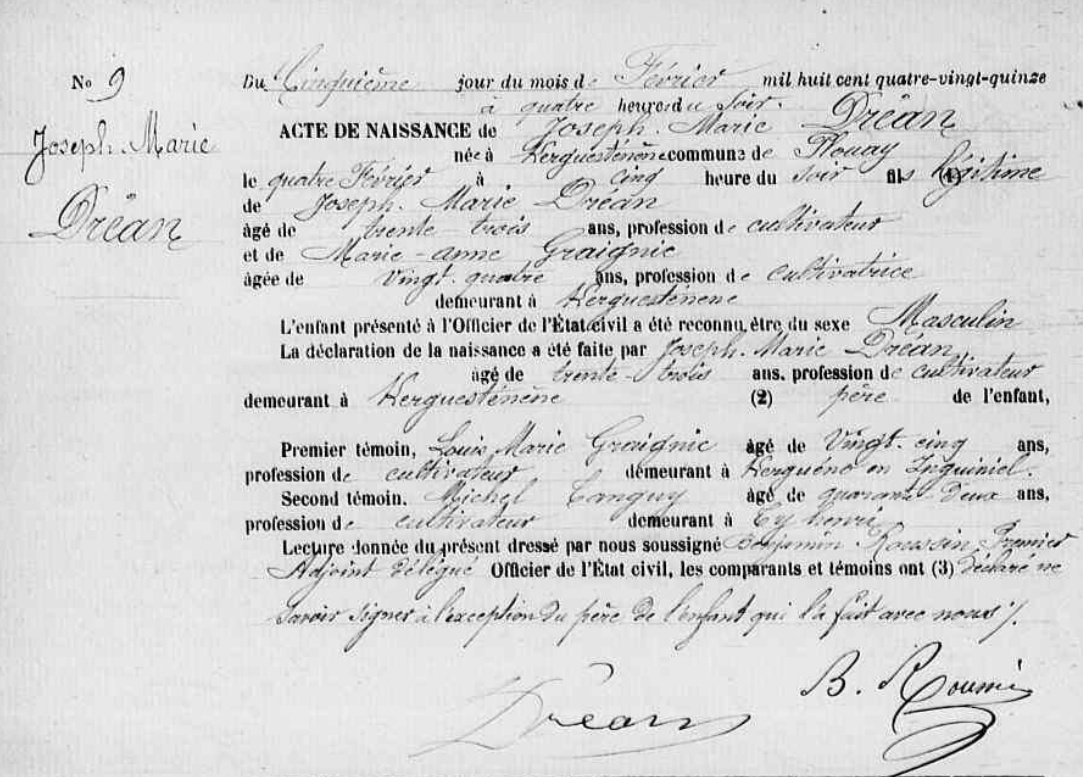 No 9
Joseph. Marie
Dréan
Du Cinquième jour du mois de Février mil huit cent quatre-vingt-quinze
à quatre heures du soir.
ACTE DE NAISSANCE de Joseph. Marie Dréan
née à Kerguesténène commune de Plouay
le quatre Février à cinq heure du soir fils (1) légitime
de Joseph. Marie Dréan
âgé de trente-trois ans, profession de cultivateur
et de Marie-anne Graignic
âgée de Vingt-quatre ans, profession de cultivatrice
demeurant à Kerguesténène
L'enfant présenté à l'Officier de l'État civil a été reconnu être du sexe Masculin
La déclaration de la naissance a été faite par Joseph. Marie Dréan
âgé de trente-trois ans. profession de cultivateur
demeurant à Kerguesténène (2) père de l'enfant,
Premier témoin, Louis Marie Graignic âgé de Vingt-cinq ans,
profession de cultivateur demeurant à Kerguéno en Inguiniel.
Second témoin. Michel Tanguy âgé de quarante-Deux ans,
profession de cultivateur demeurant à Ty henri
Lecture donnée du présent dressé par nous soussigné Benjamin Roussin, Premier
Adjoint délégué Officier de l'État civil, les comparants et témoins ont (3) déclaré ne
savoir signer à l'exception du père de l'enfant qui l'a fait avec nous /.
Dréan
B. Roussin